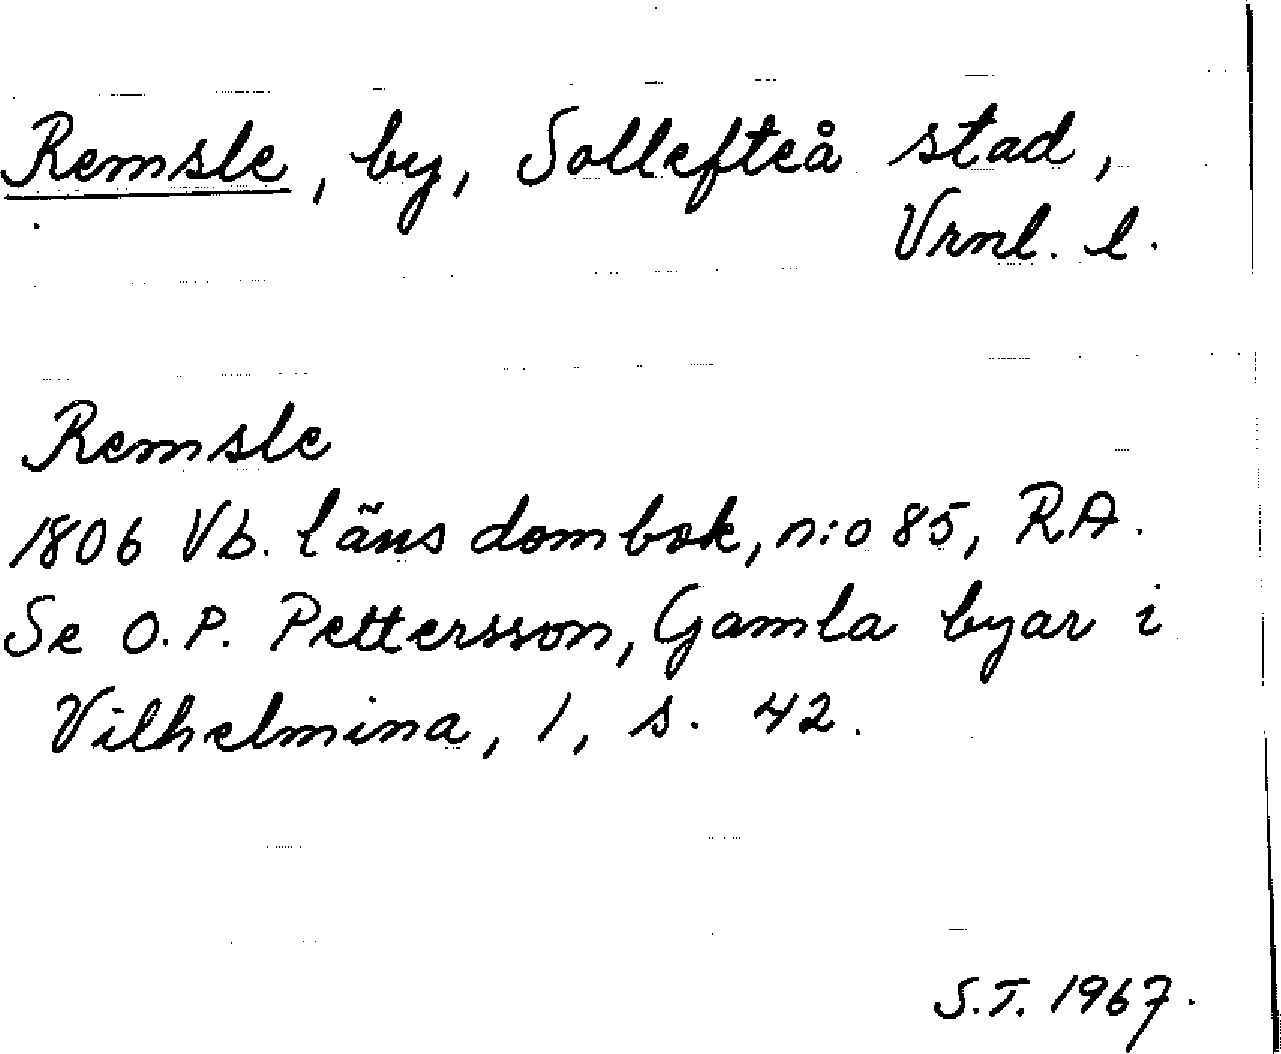 Remsle, by, Sollefteå stad,
Vrnl. l.
Remsle
1806 Vb. läns dombok, n:o 85, RA.
Se O.P. Pettersson, Gamla byar i
Vilhelmina, 1, s. 42.
S.T. 1967.